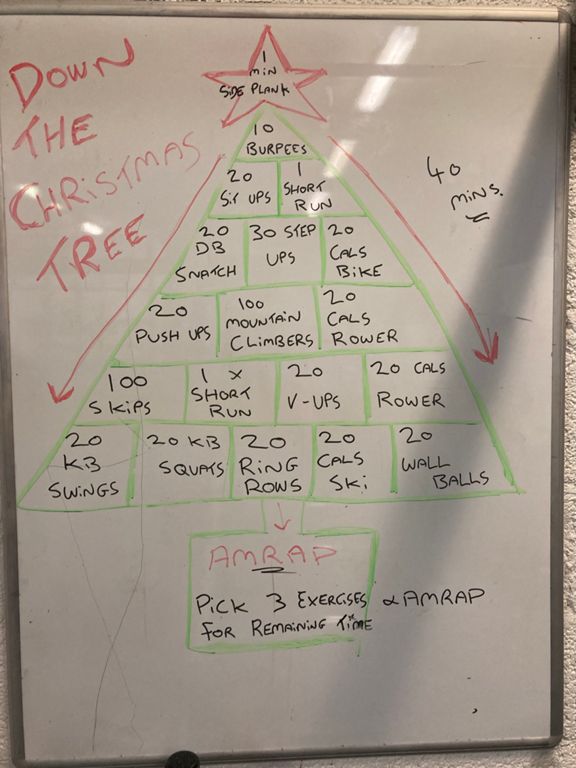 DOWN
THE
CHRISTMAS
TREE
1
MIN
SIDE PLANK
10
BURPEES
20
SIT UPS
1
SHORT
RUN
40
MINS.
20
DB
SNATCH
30 STEP
UPS
20
CALS
BIKE
20
PUSH UPS
100
MOUNTAIN
CLIMBERS
20
CALS
ROWER
100
SKIPS
1 x
SHORT
RUN
20
V-UPS
20 CALS
ROWER
20
KB
SWINGS
20 KB
SQUATS
20
RING
ROWS
20
CALS
SKI
20
WALL
BALLS
AMRAP
PICK 3 EXERCISES & AMRAP
FOR REMAINING TIME